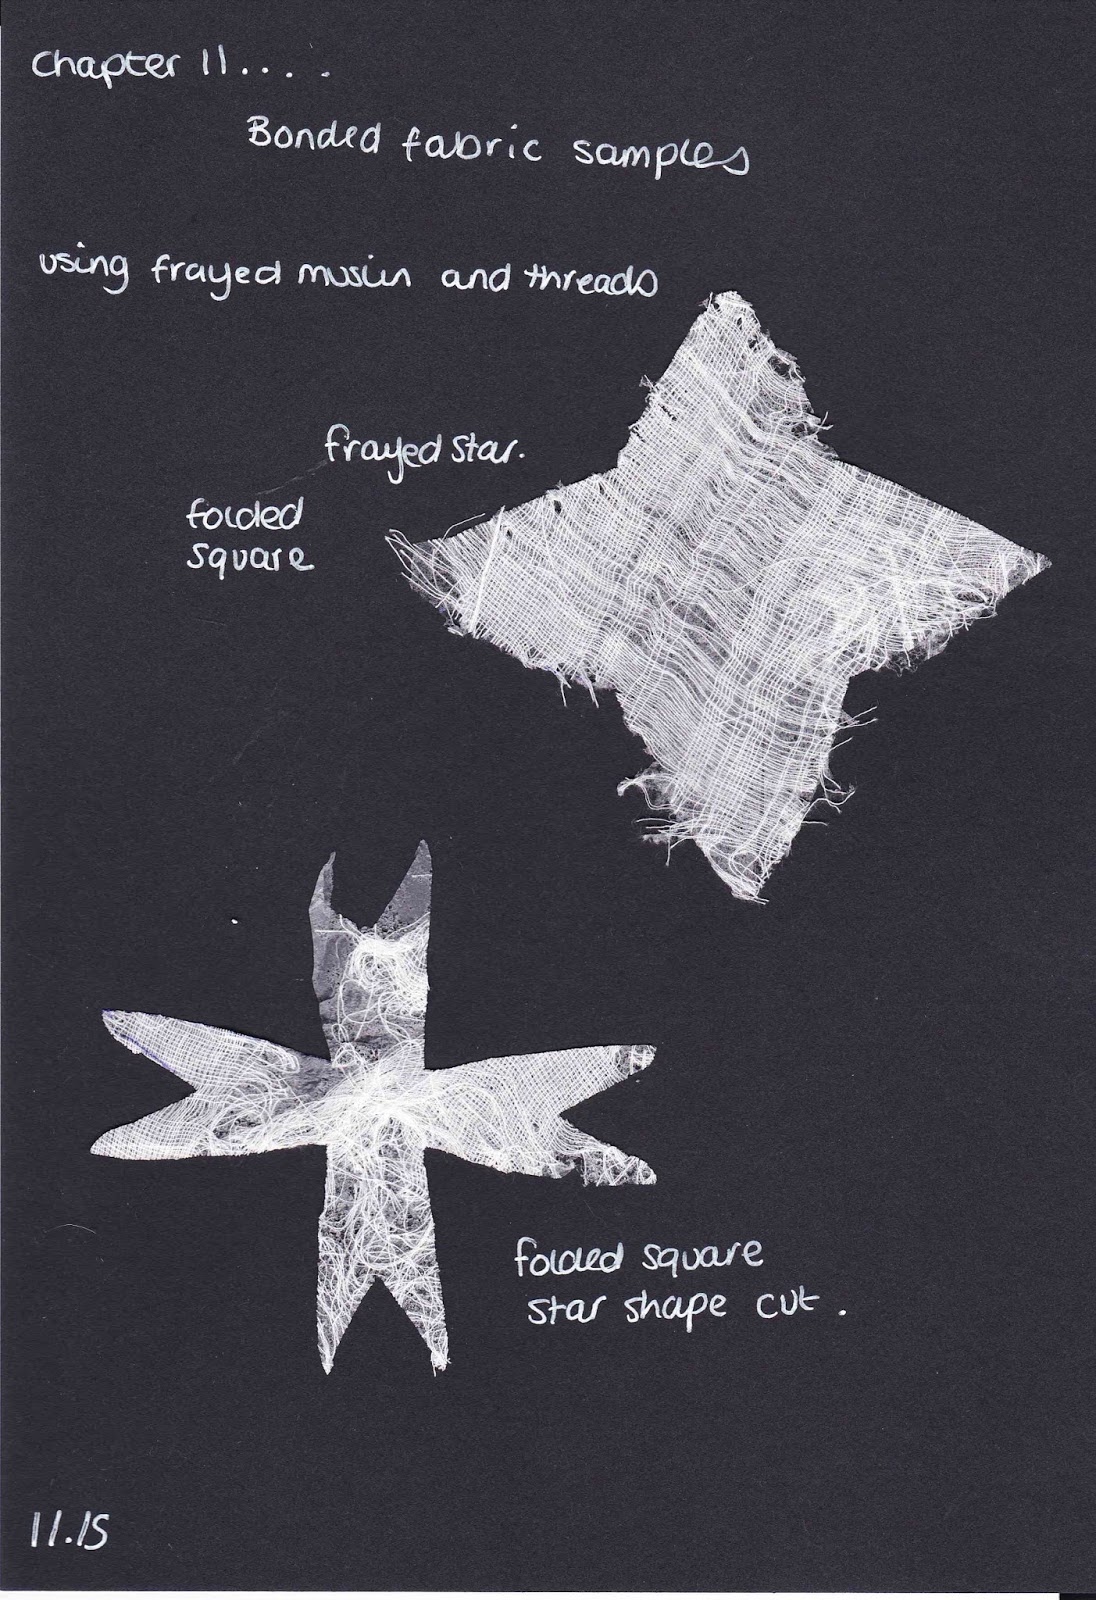 Chapter 11....
Bonded fabric samples
using frayed muslin and threads
frayed star.
folded
square
folded square
star shape cut.
11.15